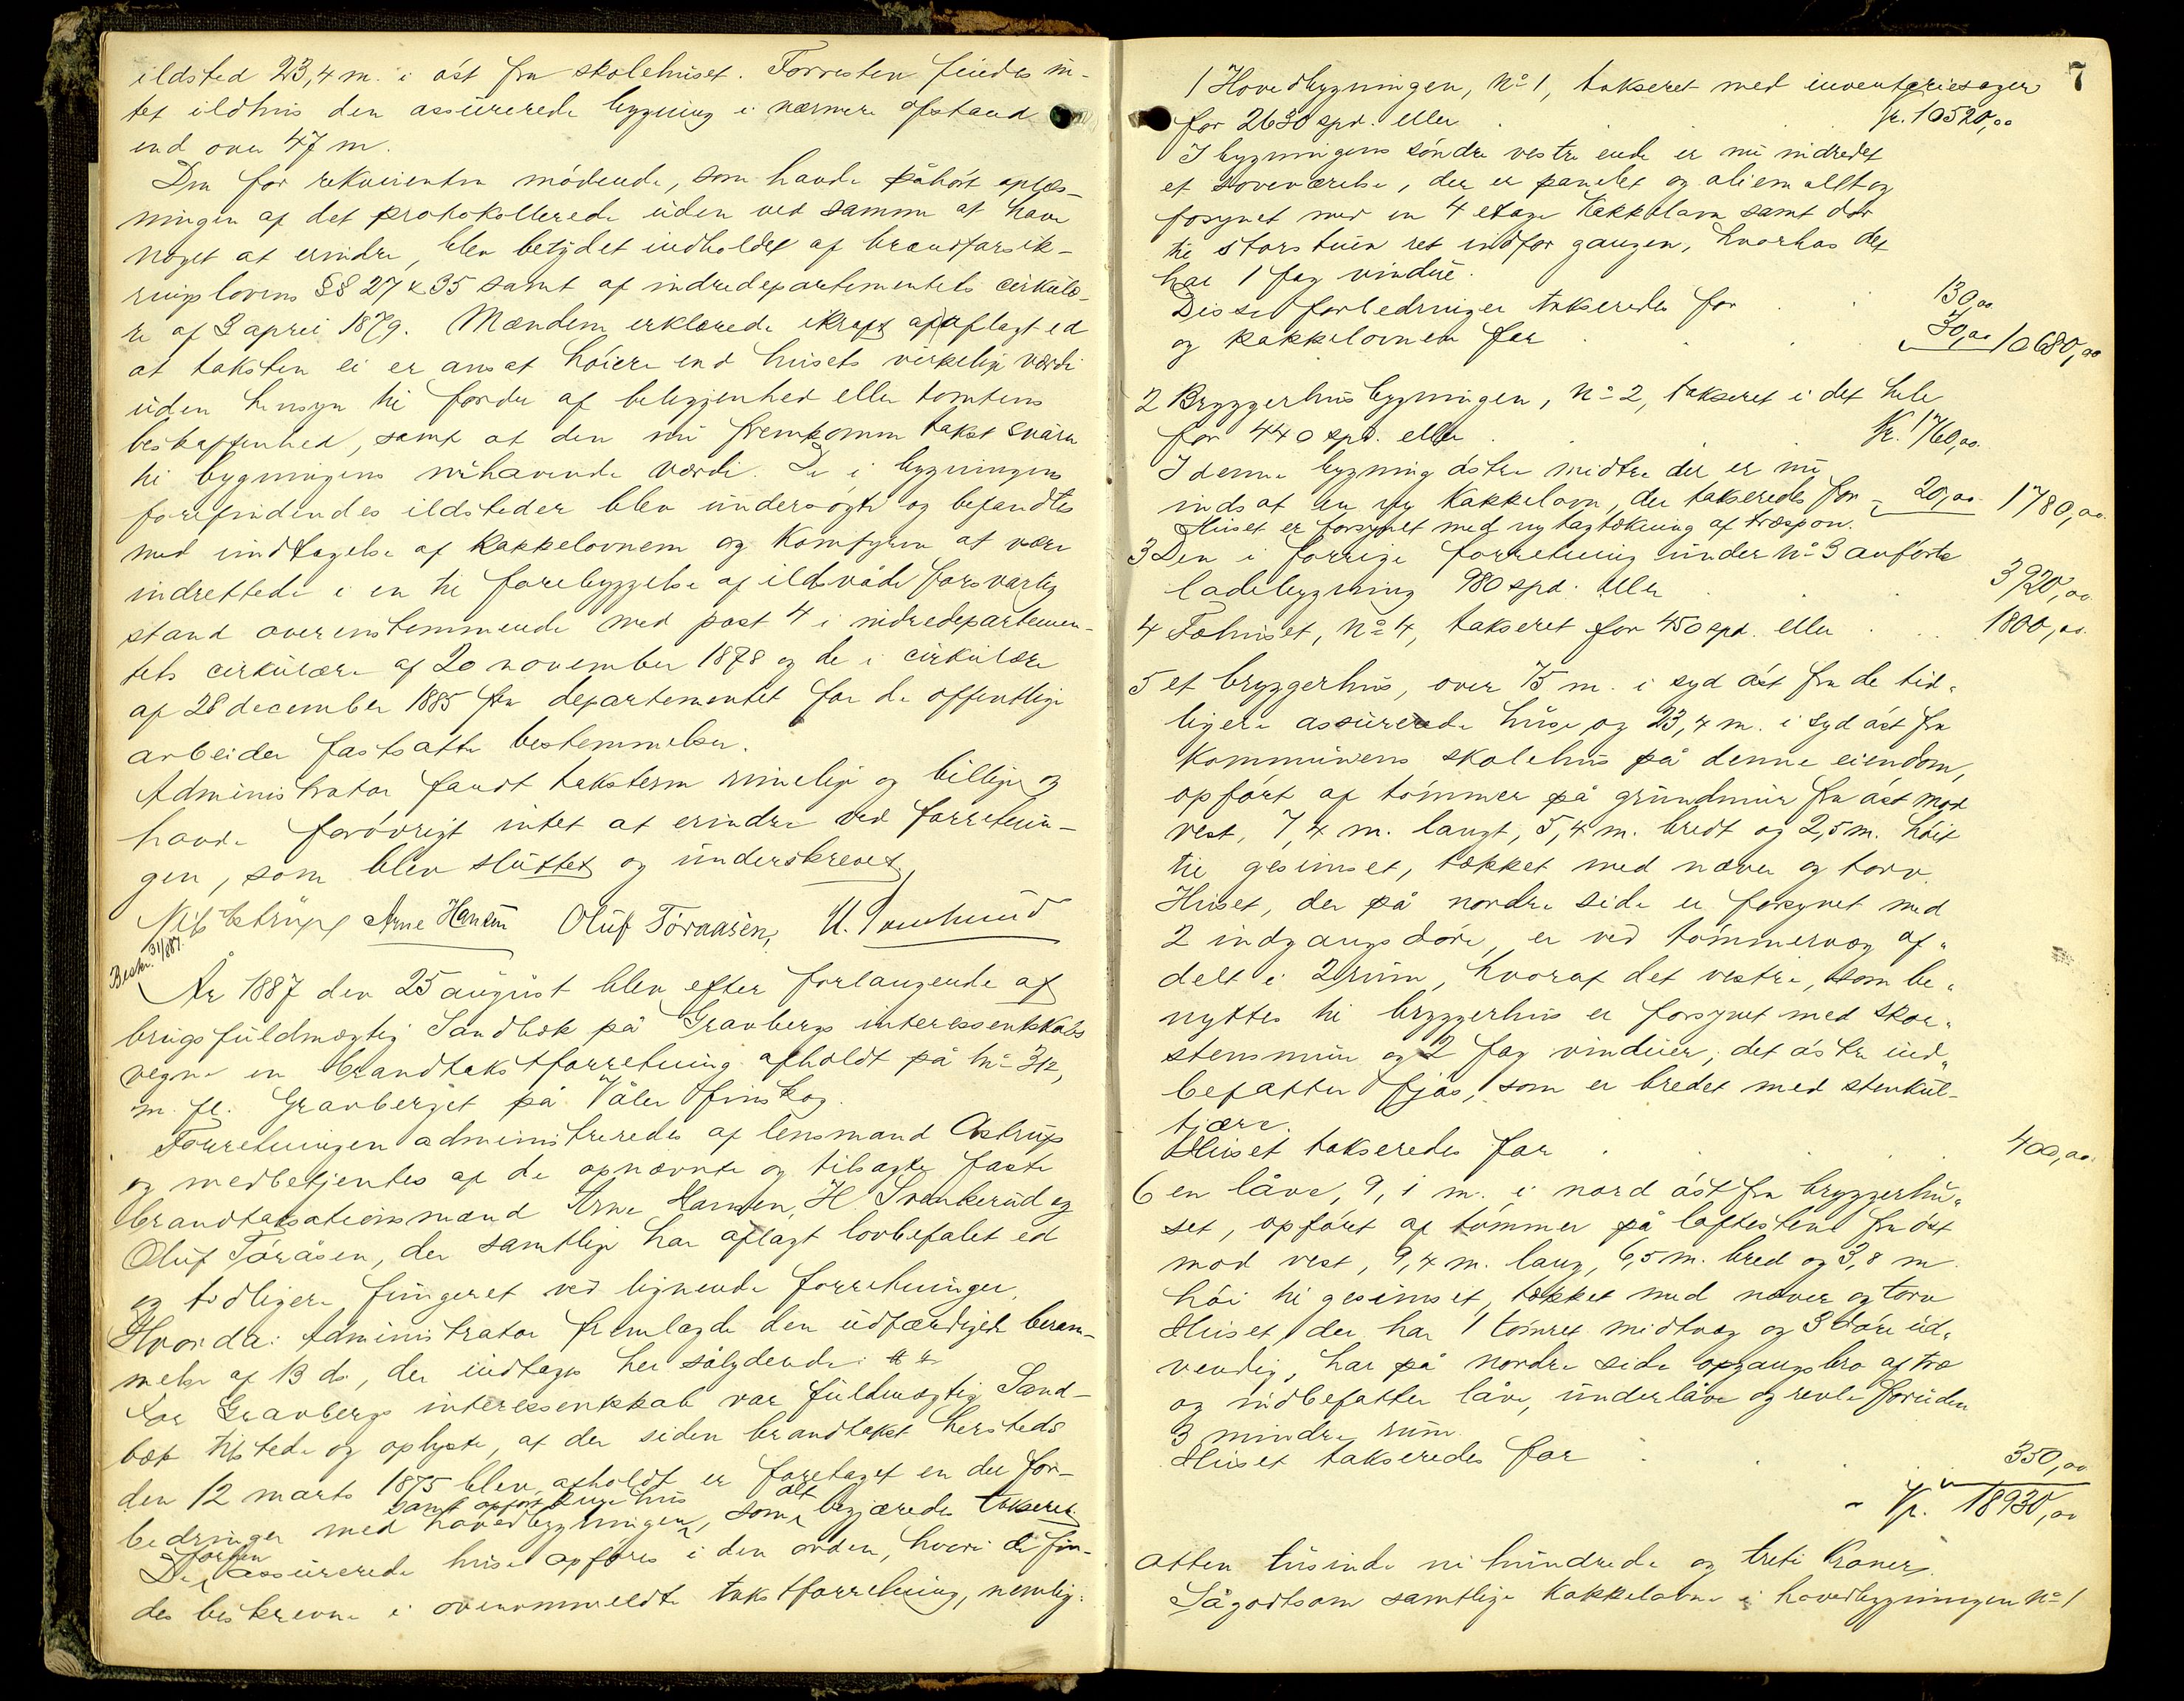 ildsted 23,4 m. i øst fra skolehuset. Forresten findes in-
tet ildhus den assurerede bygning i nærmere afstand
end over 47 m.
Den for rekvirenten mødende, som havde påhørt oplæs-
ningen af det protokollerede uden ved samme at have
noget at erindre, blev betydet indholdet af brandforsik-
ringslovens §§ 27 & 35 samt af indredepartementets cirkulæ-
re af 3 april 1879. Mændene erklærede ikraft af aflagt ed
at taksten ei er ansat høiere end husets virkelige værdi
uden hensyn til fordel af beliggenhed eller tomtens
beskaffenhed, samt at den nu fremkomne takst svarer
til bygningens nuhavende værdi. De i bygningens
forefindendes ildsteder blev undersøgte og befandtes
med undtagelse af kakkelovnene og komfyren at være
indrettede i en til forebyggelse af ildsvåde forsvarlig
stand overensstemmende med post 4 i indredepartemen-
tets cirkulære af 20 november 1878 og de i cirkulære
af 28 december 1885 fra departementet for de offentlige
arbeider fastsatte bestemmelser.
Administrator fandt taksterne rimelige og billige og
havde forøvrigt intet at erindre ved forretnin-
gen, som blev sluttet og underskrevet,
Arne Hansen Oluf Töraasen,
Beskr. 31/8 87.
År 1887 den 25 august blev efter forlangende af
brugsfuldmægtig Sandbæk på Gravbergs interessentskabs
vegne en brandtakstforretning afholdt på No 312,
m. fl. Gravberget på Våler finskog.
Forretningen administreredes af lensmand Astrup
og medbetjentes af de opnævnte og tilsagte faste
brandtaksationsmænd Arne Hansen, H. Svenkerud og
Oluf Töråsen, der samtlige har aflagt lovbefalet ed
og tidligere fungeret ved lignende forretninger.
Hvorda: Administrator fremlagde den udfærdigede beram-
melse af 13 ds, der indtages her sålydende:
For Gravbergs interessentskab var fuldmægtig Sand-
bæk tilstede og oplyste, at der siden brandtakst hersteds
den 12 marts 1875 blev afholdt er foretaget en del for-
bedringer med hovedbygningen, samt opført huse, som alt begjæredes takseret
De forhen assurerede huse opføres i den orden, hvori de fin-
des beskrevne i ovenanmeldte takstforretning, nemlig:
7
1 Hovedbygningen, No 1, takseret med inventariesager
for 2630 spd. eller . . . kr. 10520,00
I bygningens søndre vestre ende er nu indredet
et soveværelse, der er panelet og oliemalt og
forsynet med en 4 etages kakkelovn samt dør
til storstuen ret indfor gangen, hvorhos det
har 1 fag vindue.
Disse forbedringer takseredes for . . 130,00
og kakkelovnen for . . . 30,00 10680,00
2 Bryggerhusbygningen, No 2, takseret i det hele
for 440 spd. eller . . . kr. 1760,00
I denne bygnings østre midtre del er nu
indsat en ny kakkelovn, der takseredes for - 20,00 1780,00
Huset er forsynet med ny tagtækning af træspon.
3 Den i forrige forretning under No 3 anførte
ladebygning 980 spd. eller . . . 3920,00
4 Fæhuset, No 4, takseret for 450 spd. eller . . . 1800,00
5 et bryggerhus, over 75 m. i syd øst fra de tid-
ligere assurerede huse og 23,4 m. i syd øst fra
kommunens skolehus på denne eiendom,
opført af tømmer på grundmur fra øst mod
vest, 7,4 m. langt, 5,4 m. bredt og 2,5 m. høit
til gesimset, tækket med næver og torv.
Huset, der på nordre side er forsynet med
2 indgangsdøre, er ved tømmervæg af-
delt i 2 rum, hvoraf det vestre, som be-
nyttes til bryggerhus er forsynet med skor-
stensmur og 2 fag vinduer; det østre ind-
befatter fjøs, som er bredet med stenkul-
tjære.
Huset takseredes for . . . 400,00
6 en låve, 9,1 m. i nord øst fra bryggerhu-
set, opført af tømmer på løftestene fra øst
mod vest, 9,4 m. lang, 6,5 m. bred og 3,8 m
høi til gesimset, tækket med næver og torv
Huset, der har 1 tømret midtvæg og 3 døre ud-
vendig, har på nordre side opgangsbro af træ
og indbefatter låve, underlåve og revle foruden
3 mindre rum.
Huset takseredes for . . . 350,00
- Kr. 18930,00
atten tusinde ni hundrede og treti Kroner.
Sågodtsom samtlige kakkelovne i hovedbygningen No 1